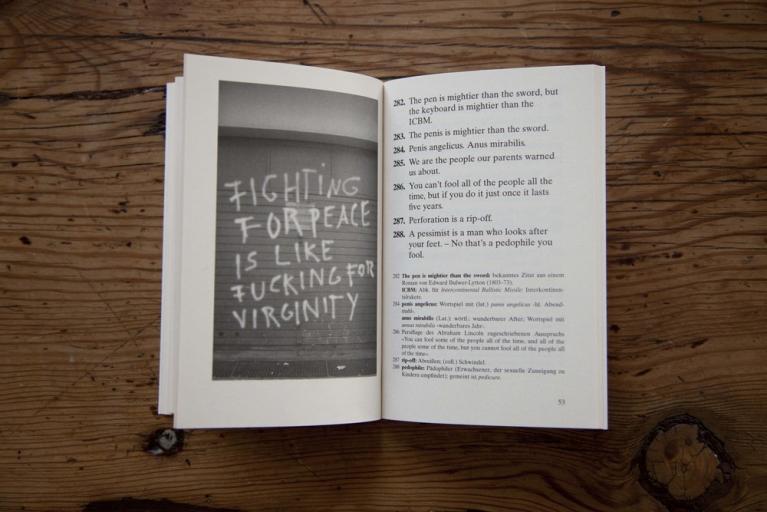 FIGHTiNG
FOR PEACE
IS LIKE
FUCKING FOR
VIRGINITY
282. The pen is mightier than the sword, but
the keyboard is mightier than the
ICBM.
283. The penis mightier than the sword.
284. Penis angelicus. Anus mirabilis.
285. We are the people our parents warned
us about.
286. You can't fool all of the people all the
time, but if you do it just once it lasts
five years.
287. Perforation is a rip-off.
288. A pessimist is a man who looks after
your feet. – No that's a pedophile you
fool.
282 The pen is mightier than the sword: bekanntes Zitat aus einem
Roman von Edward Bulwer-Lytton (1803–73).
ICBM: Abk. für Intercontinental Ballistic Missile: Interkontinen-
talrakete.
284 penis angelicus: Wortspiel mit (lat.) panis angelicus ›hl. Abend-
mahl‹.
anus mirabilis (Lat.): wörtl.: wunderbarer After; Wortspiel mit
annus mirabilis ›wunderbares Jahr‹.
286 Persiflage des Abraham Lincoln zugeschriebenen Ausspruchs
»You can fool some of the people all the time, and all of the
people some of the time, but you cannot fool all of the people all
of the time«.
287 rip-off: Abreißen; (coll.) Schwindel.
288 pedophile: Pädophiler (Erwachsener, der sexuelle Zuneigung zu
Kindern empfindet); gemeint ist pedicure.
53